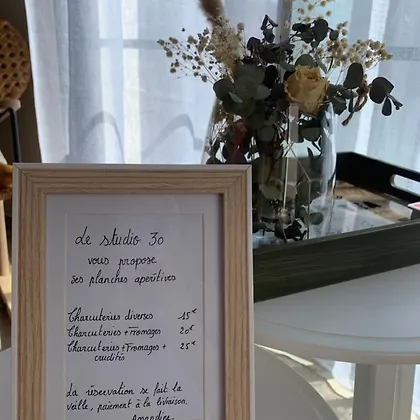 Le studio 30
vous propose
ses planches apéritives
Charcuteries diverses 15€
Charcuteries + Fromages 20€
Charcuteries + Fromages + 25€
crudités
La réservation se fait la
veille, paiement à la livraison.
Amandine